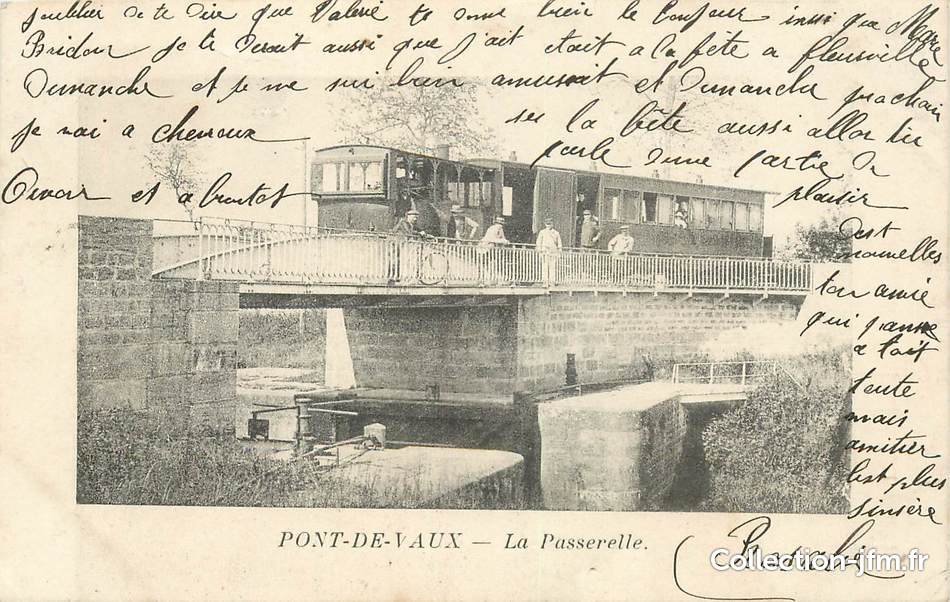 oublier de te dire que Valérie te donne bien le bonjour inssi que Marie
Bridon je te dirait aussi que j'ait était a la fête a fleurville
Dimanche et je me sui bien amusait et Dimanche prochan
je vai a chevroux ses la fête aussi allor tu
parle d'une partie de
plaisir
Orvoir et a bientot
nouvelles
ton amie
qui panse
a toit
toute
mais
amitier
les plus
sinsère
PONT-DE-VAUX — La Passerelle.
Collection-jfm.fr